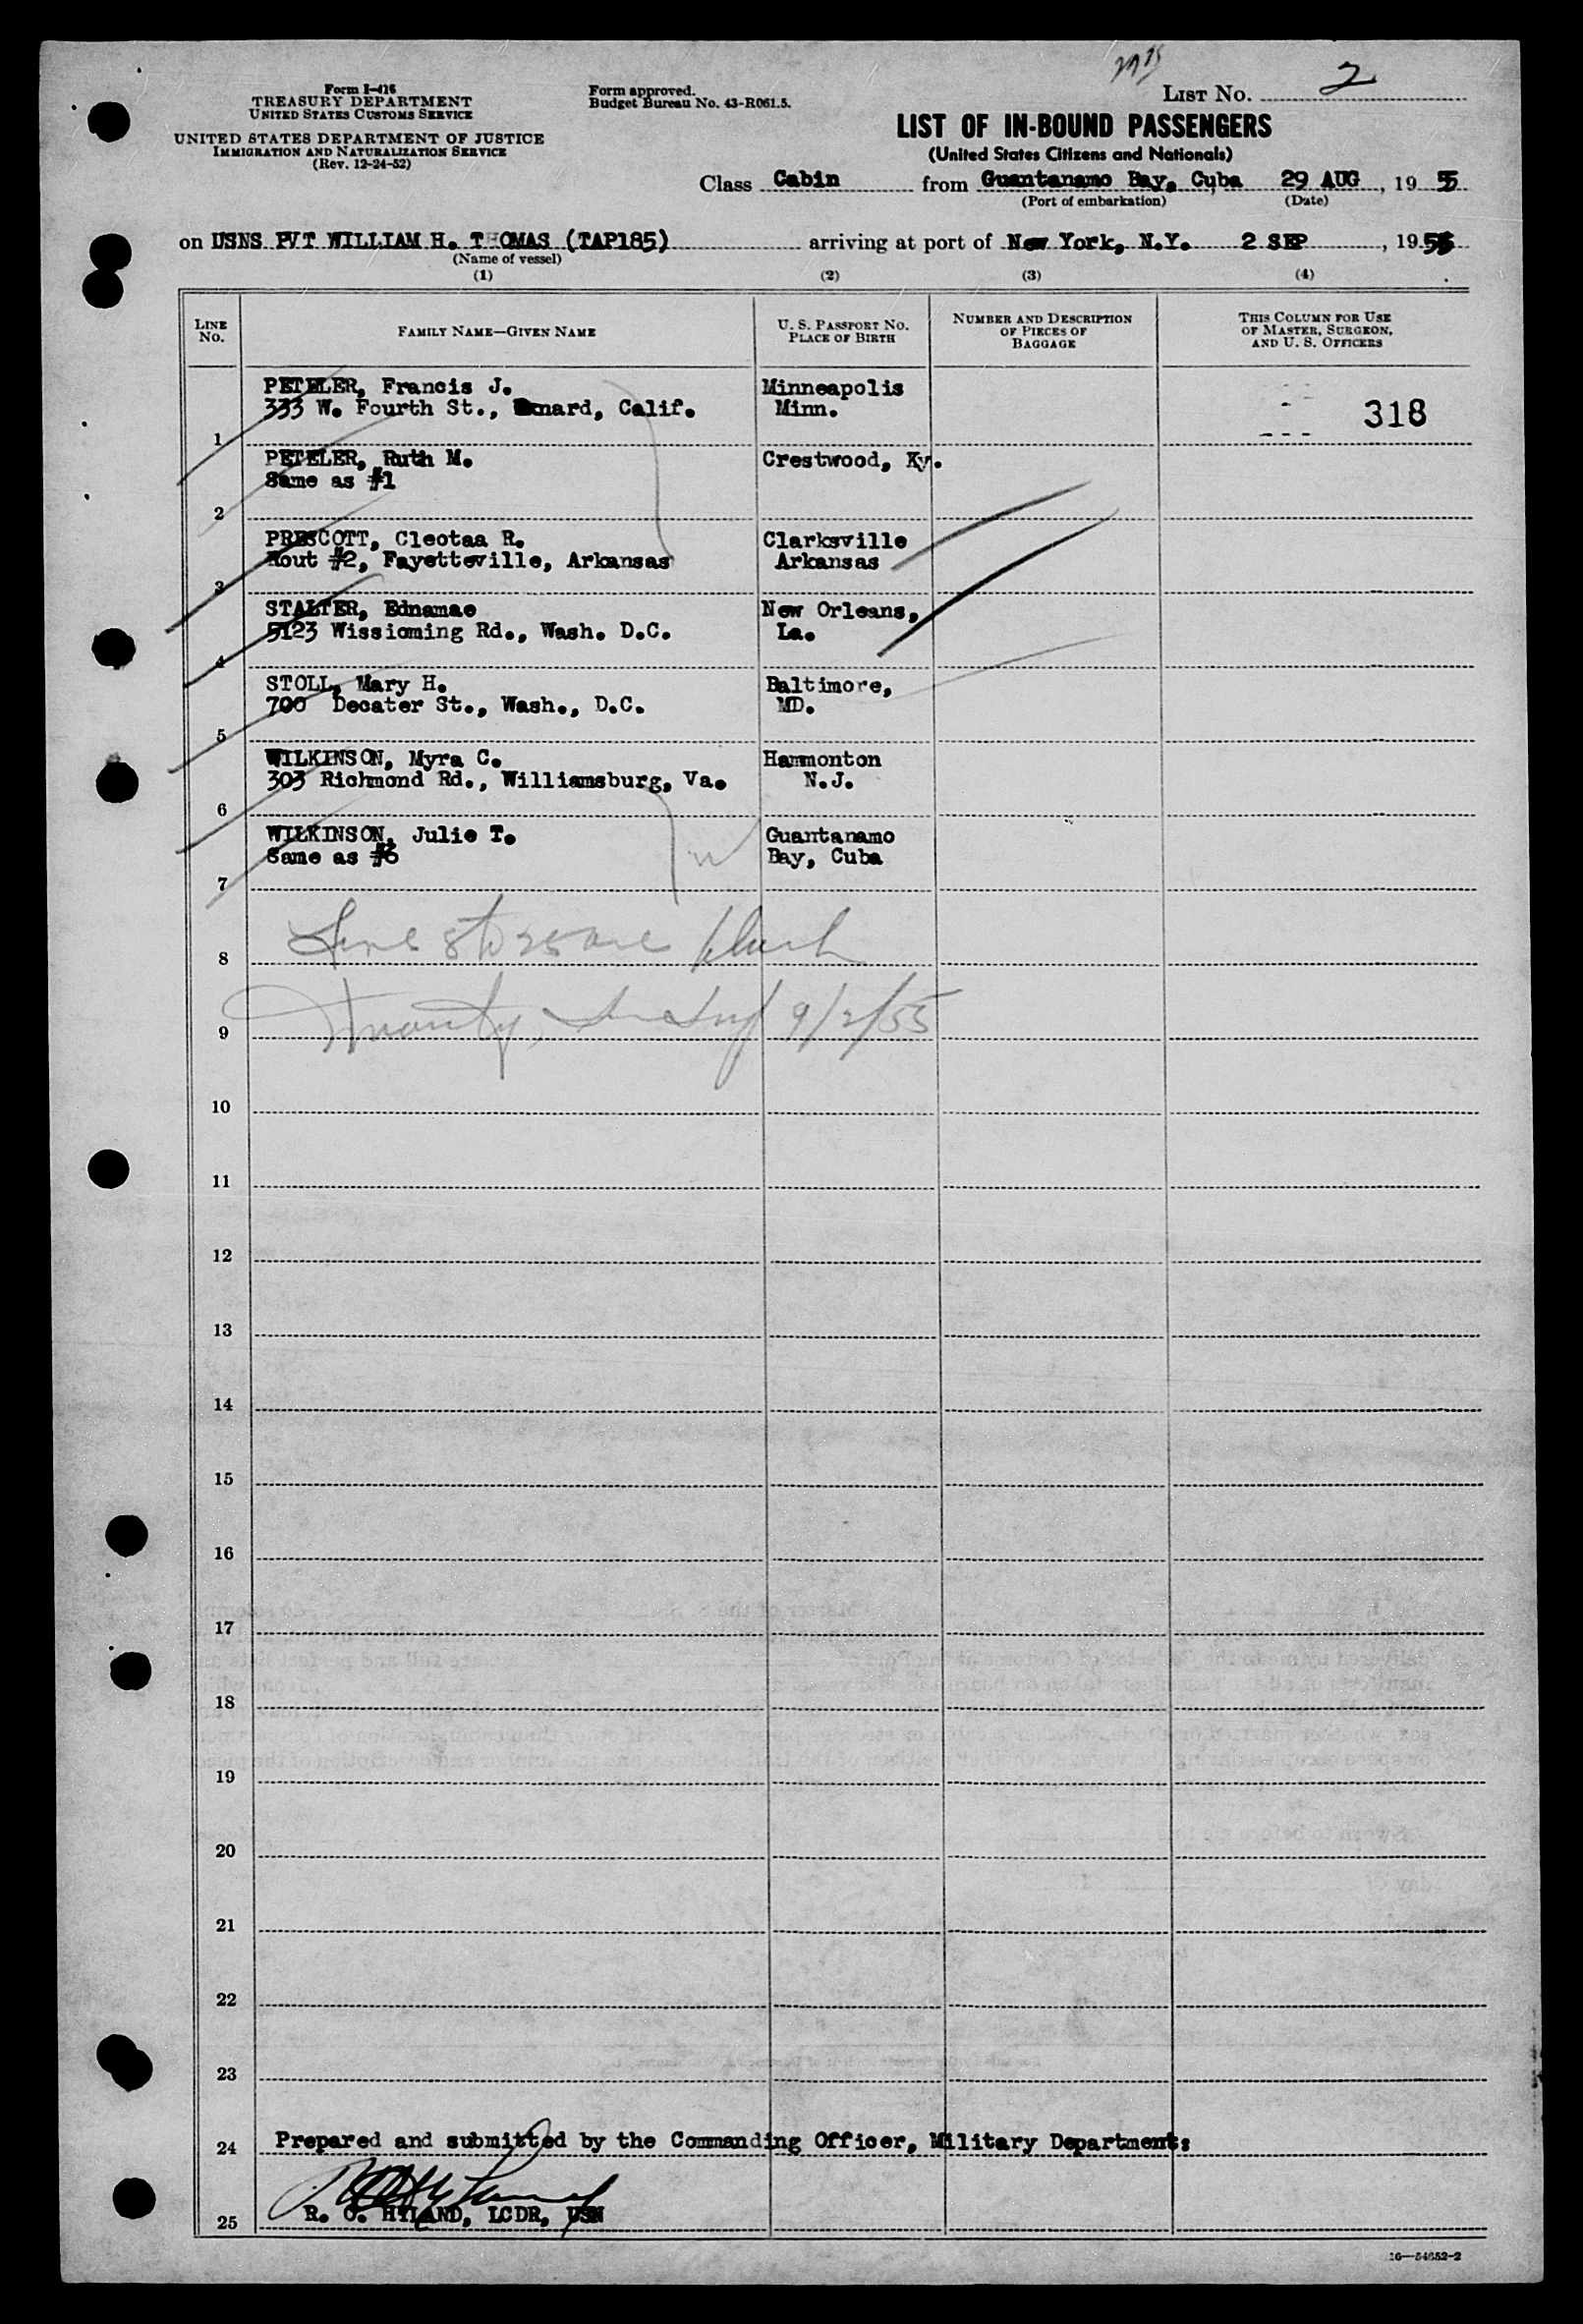 List No. 2
Form I-416
TREASURY DEPARTMENT
United States Customs Service
UNITED STATES DEPARTMENT OF JUSTICE
Immigration and Naturalization Service
(Rev. 12-24-52)
Form approved.
Budget Bureau No. 43-R061.5.
LIST OF IN-BOUND PASSENGERS
(United States Citizens and Nationals)
Class Cabin from Guantanamo Bay, Cuba 29 AUG, 19 55
(Port of embarkation) (Date)
on USNS PVT WILLIAM H. THOMAS (TAP185) arriving at port of New York, N.Y. 2 SEP, 19 55
(Name of vessel)
(1) (2) (3) (4)
Line No. Family Name—Given Name U. S. Passport No. Place of Birth Number and Description of Pieces of Baggage This Column for Use of Master, Surgeon, and U. S. Officers
PETELER, Francis J. Minneapolis
333 W. Fourth St., Oxnard, Calif. Minn. 318
1
PETELER, Ruth M. Crestwood, Ky.
Same as #1
2
PRESCOTT, Cleotaa R. Clarksville
Rout #2, Fayetteville, Arkansas Arkansas
3
STALTER, Ednamae New Orleans,
5123 Wissioming Rd., Wash. D.C. La.
4
STOLL, Mary H. Baltimore,
700 Decater St., Wash., D.C. MD.
5
WILKINSON, Myra C. Hammonton
303 Richmond Rd., Williamsburg, Va. N.J.
6
WILKINSON, Julie T. Guantanamo
Same as #6 Bay, Cuba
7
Line 8 to 25 are blank
8
9/2/55
9
10
11
12
13
14
15
16
17
18
19
20
21
22
23
24 Prepared and submitted by the Commanding Officer, Military Department:
25 R. O. HYLAND, LCDR, USN
16—54652-2